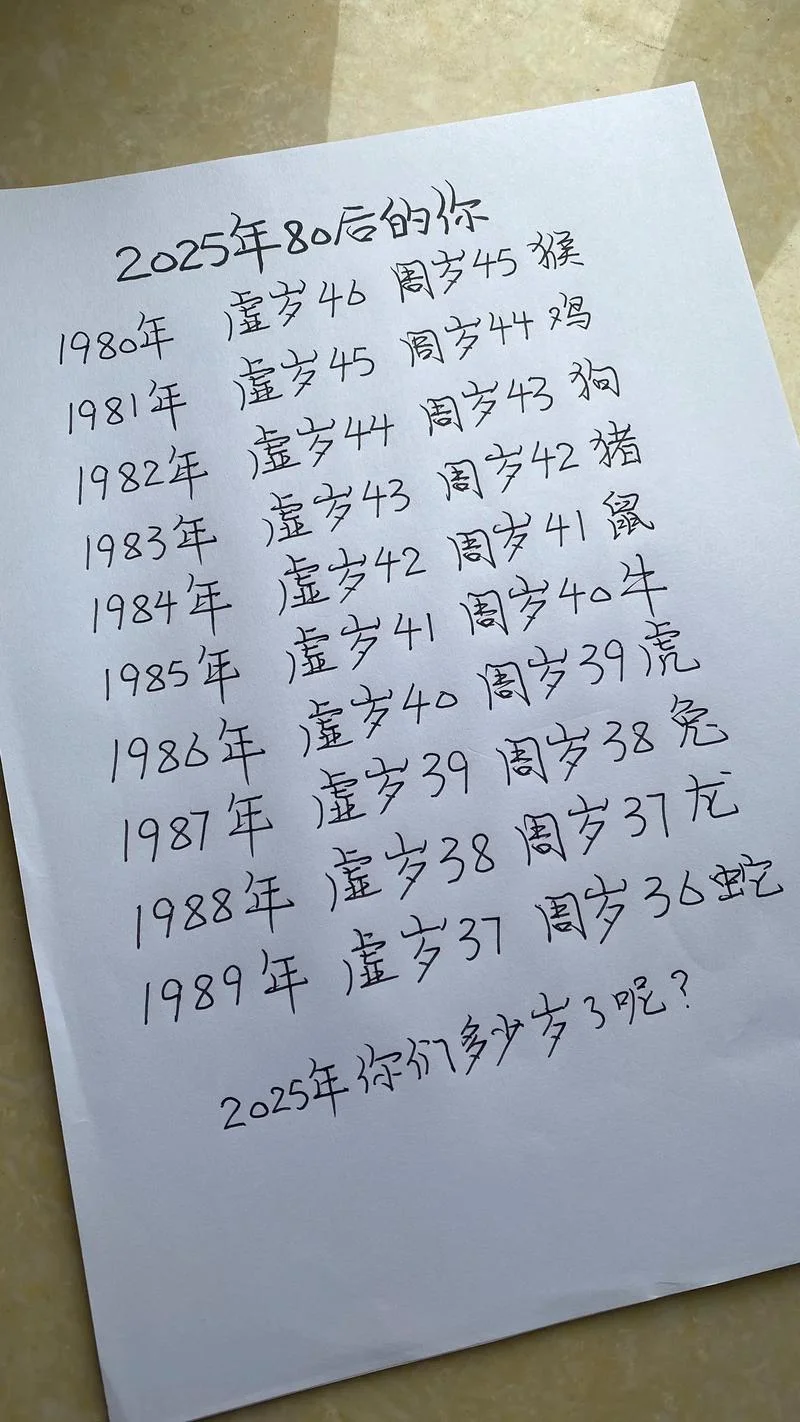 2025年80后的你
1980年 虚岁46 周岁45 猴
1981年 虚岁45 周岁44 鸡
1982年 虚岁44 周岁43 狗
1983年 虚岁43 周岁42 猪
1984年 虚岁42 周岁41 鼠
1985年 虚岁41 周岁40 牛
1986年 虚岁40 周岁39 虎
1987年 虚岁39 周岁38 兔
1988年 虚岁38 周岁37 龙
1989年 虚岁37 周岁36 蛇
2025年你们多少岁了呢?